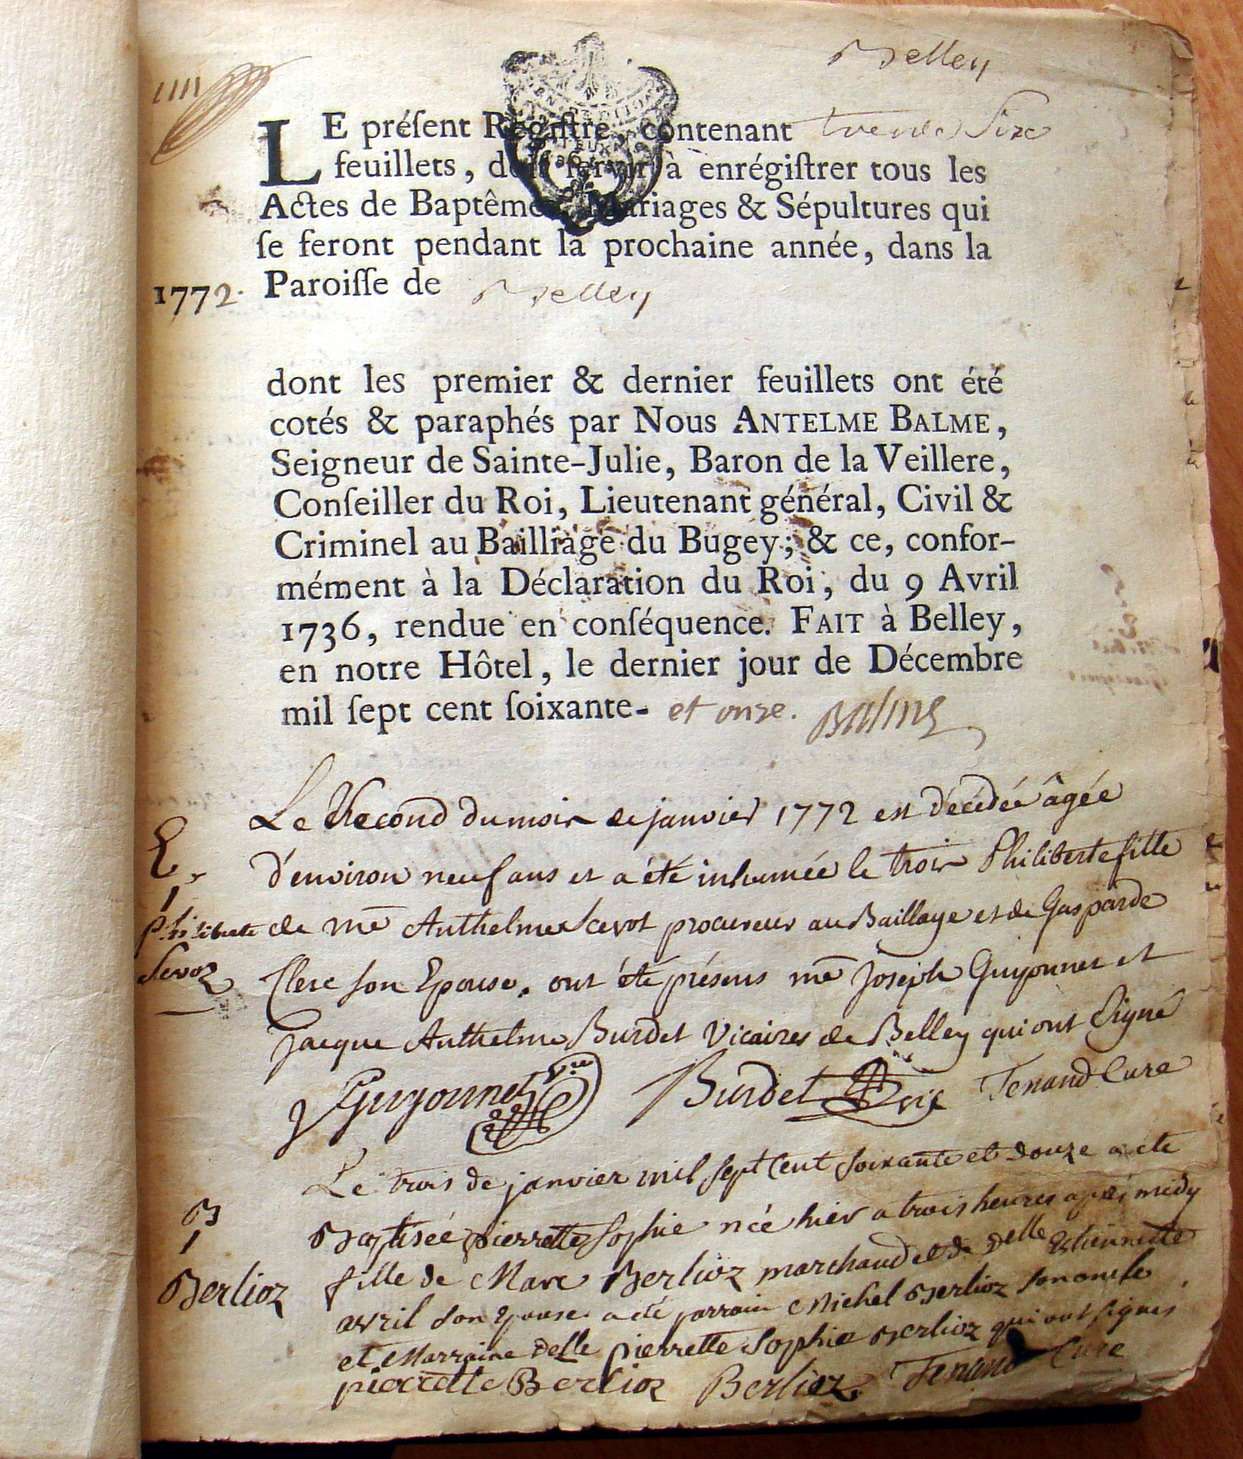 Belley
LE préſent Regiſtre, contenant trende Sixe
feuillets, doit ſervir à enrégiſtrer tous les
Actes de Baptêmes, Mariages & Sépultures qui
ſe feront pendant la prochaine année, dans la
1772. Paroiſſe de Belley
dont les premier & dernier feuillets ont été
cotés & paraphés par Nous ANTELME BALME,
Seigneur de Sainte-Julie, Baron de la Veillere,
Conſeiller du Roi, Lieutenant général, Civil &
Criminel au Bailliage du Bugey; & ce, confor-
mément à la Déclaration du Roi, du 9 Avril
1736, rendue en conſéquence. FAIT à Belley,
en notre Hôtel, le dernier jour de Décembre
mil ſept cent ſoixante- et onze. Balme
Le Second du mois de janvier 1772 est décédée âgée
d'environ neuf ans et a été inhumée le trois Philiberte fille
de me Anthelme Scevot procureur au Baillage et de Gasparde
Clerc son Epouse. ont été présens me Joseph Guyonnet et
Jacque Anthelme Burdet Vicaires de Belley qui ont Signé
E
1
Philiberte
Sevoz
J Guyonnet vre Burdet vic Tenand Cure
Le trois de janvier mil sept Cent soixante et douze a ete
Baptisée pierrette Sophie née hier a trois heures apres midy
fille de Marc Berlioz marchand et de delle Etiennette
avril son Epouse a été parrain Michel Berlioz son oncle
et Marraine delle pierrette Sophie Berlioz qui ont signes
B
1
Berlioz
pierrette Berlioz Berlioz Tenand Cure